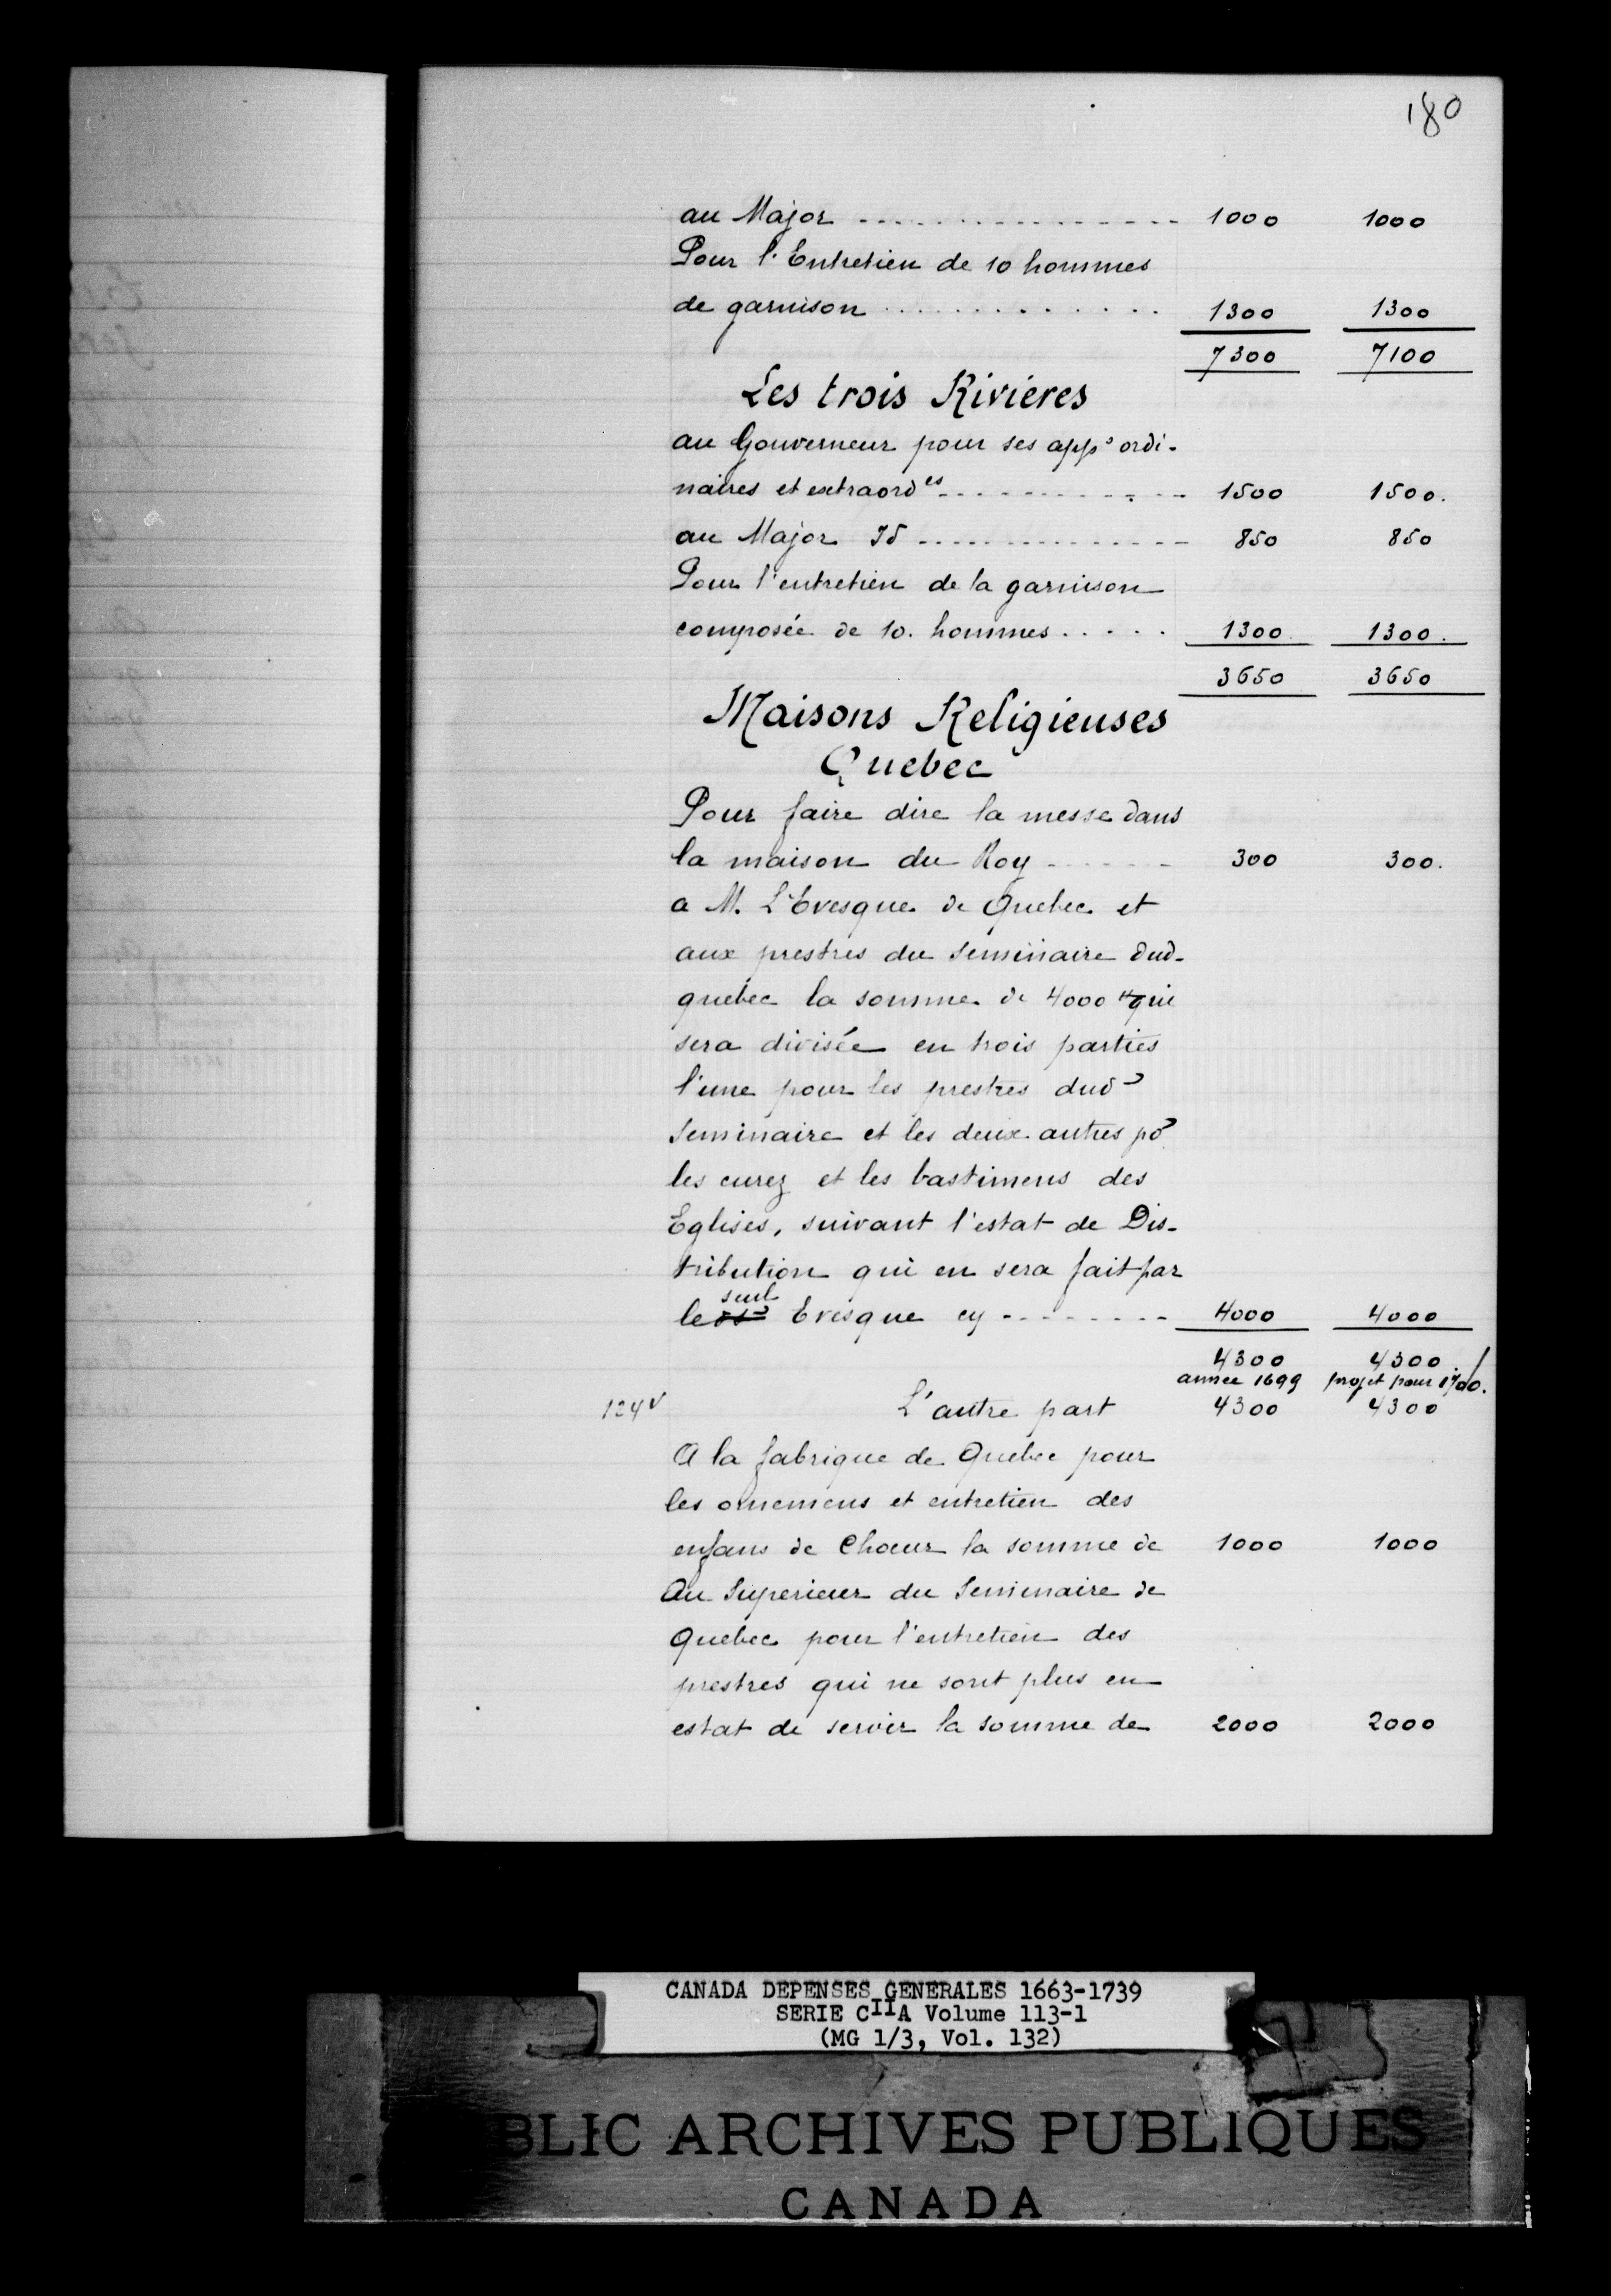 180
au Major ................ 1000 1000
Pour l'Entretien de 10 hommes
de garnison ............. 1300 1300
7300 7100
Les trois Rivieres
au Gouverneur pour ses apps ordi-
naires et extraordes ............ 1500 1500.
au Major Id ............... 850 850
Pour l'entretien de la garnison
composée de 10. hommes ..... 1300. 1300.
3650 3650
Maisons Religieuses
Quebec
Pour faire dire la messe dans
la maison du Roy ...... 300 300.
a M. L'Evesque de Quebec et
aux prestres du Seminaire dud-
quebec la somme de 4000 ₶ qui
sera divisée en trois parties
l'une pour les prestres dud
Seminaire et les deux autres po
les curez et les bastimens des
Eglises, suivant l'estat de Dis-
tribution qui en sera fait par
seul
le Evesque cy ........ 4000 4000
4300 4300
année 1699 projet pour 1700.
124v L'autre part 4300 4300
A la fabrique de Quebec pour
les ornemens et entretien des
enfans de Choeur la somme de 1000 1000
Au Superieur du Seminaire de
Quebec pour l'entretien des
prestres qui ne sont plus en
estat de servir la somme de 2000 2000
CANADA DEPENSES GENERALES 1663-1739
SERIE CIIA Volume 113-1
(MG 1/3, Vol. 132)
BLIC ARCHIVES PUBLIQUES
CANADA